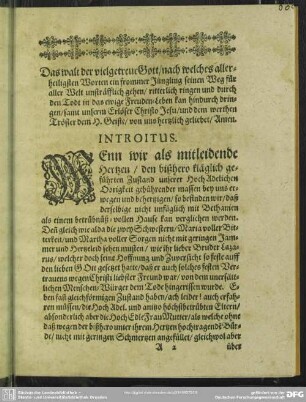 Das walt der vielgetreue Gott / nach welches aller-
heiligsten Worten ein frommer Jüngling seinen Weg für
aller Welt unsträfflich gehen / ritterlich ringen und durch
den Todt in das ewige Freuden-Leben kan hindurch drin-
gen / samt unserm Erlöser Christo Jesu / und dem werthen
Tröster dem H. Geiste / von uns hertzlich geliebet / Amen.
INTROITUS.
WEnn wir als mitleidende
Hertzen / den bißhero kläglich ge-
führten Zustand unserer Hoch Adelichen
Obrigkeit gebührender massen bey uns er-
wegen und behertzigen / so befinden wir / daß
derselbige nicht unfüglich mit Bethanien
als einem betrübnüß-vollen Hause kan verglichen werden.
Deñ gleich wie alda die zwey Schwestern / Maria voller Bit-
terkeit / und Martha voller Sorgen nicht mit geringen Jam-
mer und Hertzeleid sehen musten / wie ihr lieber Bruder Laza-
rus / welcher doch seine Hoffnung und Zuversicht so feste auff
den lieben GOtt gesetzet hatte / daß er auch solches festen Ver-
trauens wegen Christi liebster Freund war / von dem unersätt-
lichen Menschen-Würger dem Tode hingerissen wurde. E-
ben fast gleichförmigen Zustand haben / ach leider! auch erfah-
ren müssen / die Hoch Adel. und anitzo höchstbetrübten Eltern /
absonderlich aber die Hoch Edle Frau Mutter / als welche ohne
daß wegen der bißhero unter ihrem Hertzen hochtragende Bür-
de / nicht mit geringen Schmertzen angefüllet / gleichwol aber
A 2
über